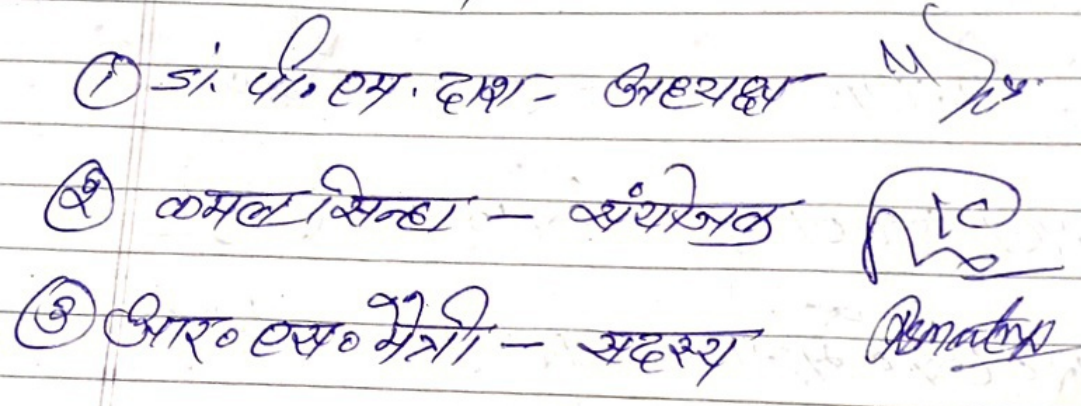 ① डॉ. पी. एम. दाश - अध्यक्ष
② कमल सिन्हा - संयोजक
③ आर० एस० मैत्री - सदस्य